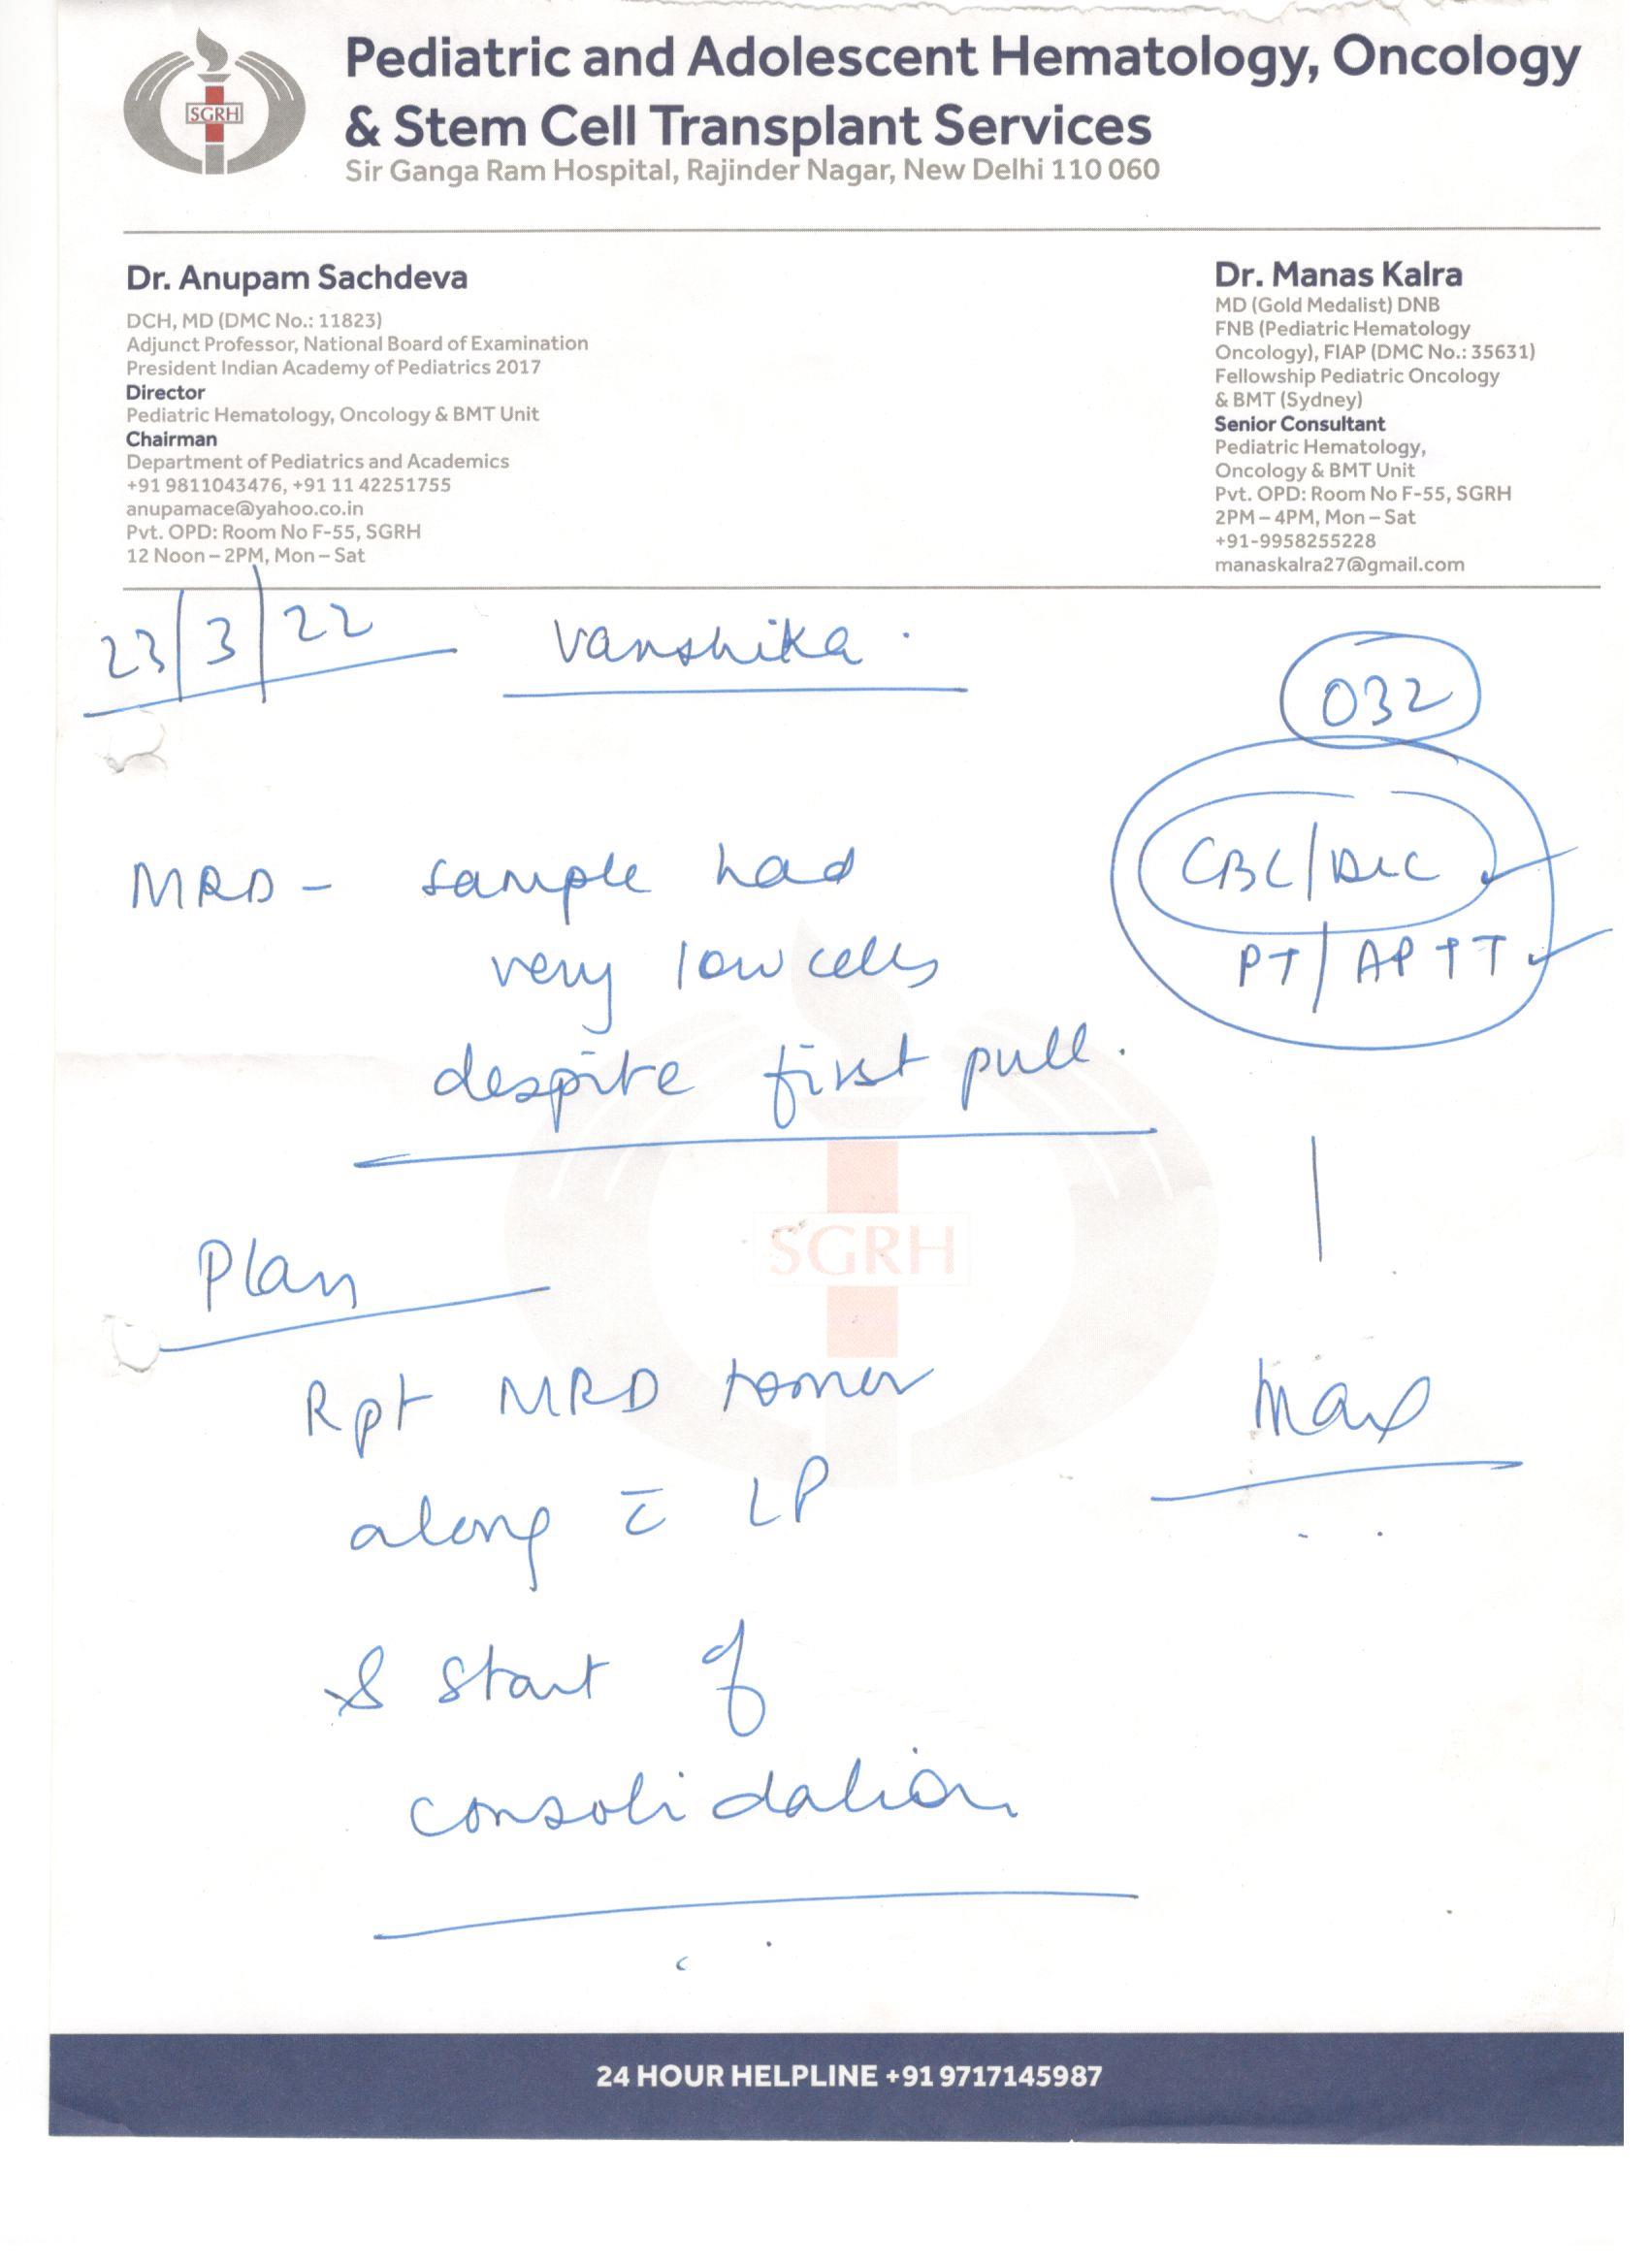 SGRH
Pediatric and Adolescent Hematology, Oncology
& Stem Cell Transplant Services
Sir Ganga Ram Hospital, Rajinder Nagar, New Delhi 110 060
Dr. Anupam Sachdeva
DCH, MD (DMC No.: 11823)
Adjunct Professor, National Board of Examination
President Indian Academy of Pediatrics 2017
Director
Pediatric Hematology, Oncology & BMT Unit
Chairman
Department of Pediatrics and Academics
+91 9811043476, +91 11 42251755
anupamace@yahoo.co.in
Pvt. OPD: Room No F-55, SGRH
12 Noon – 2PM, Mon – Sat
Dr. Manas Kalra
MD (Gold Medalist) DNB
FNB (Pediatric Hematology
Oncology), FIAP (DMC No.: 35631)
Fellowship Pediatric Oncology
& BMT (Sydney)
Senior Consultant
Pediatric Hematology,
Oncology & BMT Unit
Pvt. OPD: Room No F-55, SGRH
2PM – 4PM, Mon – Sat
+91-9958255228
manaskalra27@gmail.com
23/3/22 Vanshika.
032
CBC/DLC
PT/APTT
MRD - sample had
very low cells
despite first pull.
SGRH
Plan
Rpt MRD
along c̄ LP
& start of
consolidation
24 HOUR HELPLINE +91 9717145987